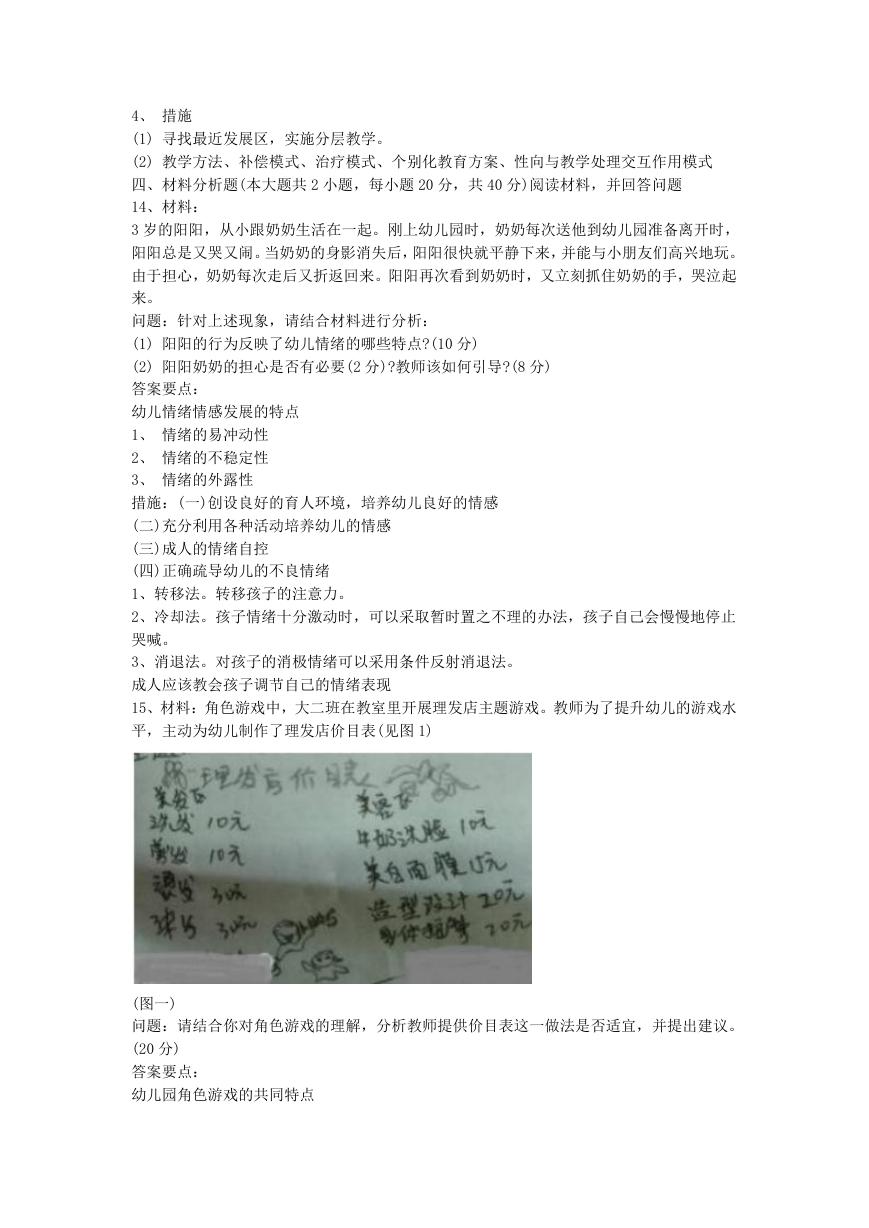 4、 措施
(1) 寻找最近发展区，实施分层教学。
(2) 教学方法、补偿模式、治疗模式、个别化教育方案、性向与教学处理交互作用模式
四、材料分析题(本大题共 2 小题，每小题 20 分，共 40 分)阅读材料，并回答问题
14、材料：
3 岁的阳阳，从小跟奶奶生活在一起。刚上幼儿园时，奶奶每次送他到幼儿园准备离开时，
阳阳总是又哭又闹。当奶奶的身影消失后，阳阳很快就平静下来，并能与小朋友们高兴地玩。
由于担心，奶奶每次走后又折返回来。阳阳再次看到奶奶时，又立刻抓住奶奶的手，哭泣起
来。
问题：针对上述现象，请结合材料进行分析：
(1) 阳阳的行为反映了幼儿情绪的哪些特点?(10 分)
(2) 阳阳奶奶的担心是否有必要(2 分)?教师该如何引导?(8 分)
答案要点：
幼儿情绪情感发展的特点
1、 情绪的易冲动性
2、 情绪的不稳定性
3、 情绪的外露性
措施：(一)创设良好的育人环境，培养幼儿良好的情感
(二)充分利用各种活动培养幼儿的情感
(三)成人的情绪自控
(四)正确疏导幼儿的不良情绪
1、转移法。转移孩子的注意力。
2、冷却法。孩子情绪十分激动时，可以采取暂时置之不理的办法，孩子自己会慢慢地停止
哭喊。
3、消退法。对孩子的消极情绪可以采用条件反射消退法。
成人应该教会孩子调节自己的情绪表现
15、材料：角色游戏中，大二班在教室里开展理发店主题游戏。教师为了提升幼儿的游戏水
平，主动为幼儿制作了理发店价目表(见图 1)
理发店价目表
美发区
洗发 10元
剪发 10元
烫发 30元
染发 30元
美容区
牛奶洗脸 10元
美白面膜 15元
造型设计 20元
身体按摩 20元
(图一)
问题：请结合你对角色游戏的理解，分析教师提供价目表这一做法是否适宜，并提出建议。
(20 分)
答案要点：
幼儿园角色游戏的共同特点